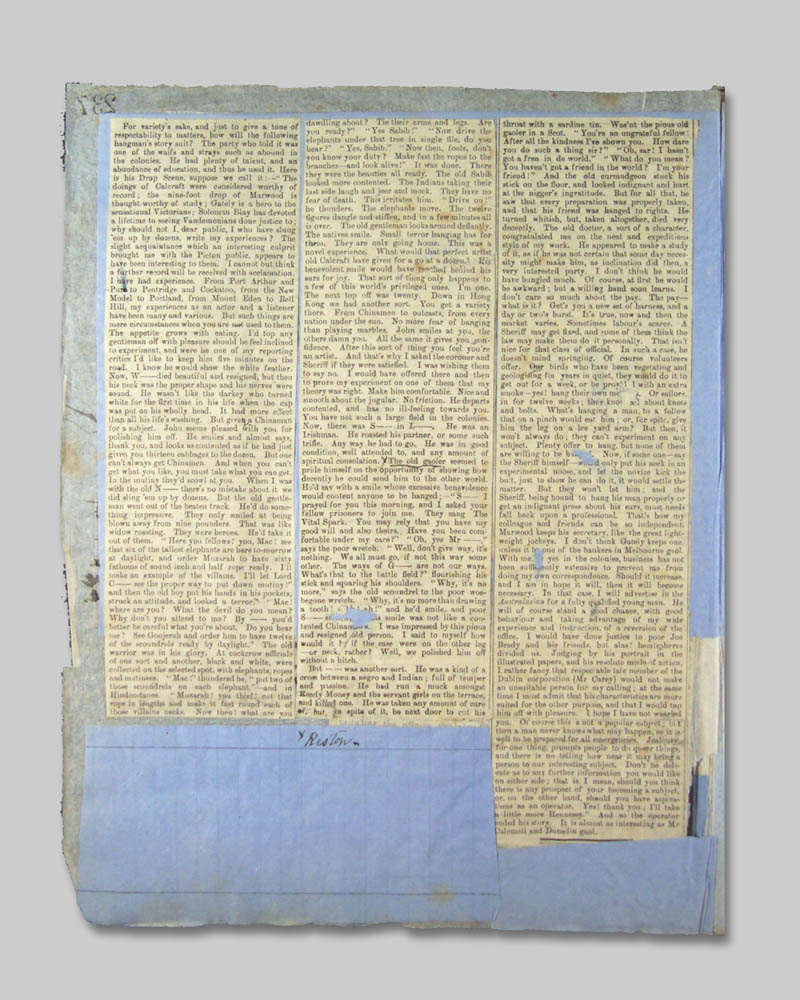 237
For variety's sake, and just to give a tone of
respectability to matters, how will the following
hangman's story suit? The party who told it was
one of the waifs and strays such as abound in
the colonies. He had plenty of talent, and an
abundance of education, and thus he used it. Here
is his Drop Scene, suppose we call it:—"The
doings of Calcraft were considered worthy of
record; the nine-foot drop of Marwood is
thought worthy of study; Gately is a hero to the
sensational Victorians; Solomon Blay has devoted
a lifetime to seeing Vandemonians done justice to;
why should not I, dear public, I who have slung
'em up by dozens, write my experiences? The
slight acquaintance which an interesting culprit
brought me with the Picton public, appears to
have been interesting to them. I cannot but think
a further record will be received with acclamation.
I have had experience. From Port Arthur and
to Pentridge and Cockatoo, from the New
Model to Portland, from Mount Eden to Bell
Hill, my experiences as an actor and a listener
have been many and various. But such things are
mere circumstances when you are used to them.
The appetite grows with eating. I'd top any
gentleman off with pleasure should he feel inclined
to experiment, and were he one of my reporting
critics I'd like to keep him five minutes on the
road. I know he would show the white feather.
Now, W—died beautiful and resigned, but then
his neck was the proper shape and his nerves were
sound. He wasn't like the darkey who turned
white for the first time in his life when the cap
was put on his wholly head. It had more effect
than all his life's washing. But given a Chinaman
for a subject. John seems pleased with you for
polishing him off. He smiles and almost says,
thank you, and looks as contented as if he had just
given you thirteen cabbages to the dozen. But one
can't always get Chinamen. And when you can't
get what you like, you must take what you can get.
In the mutiny they'd scowl at you. When I was
with the old N— there's no mistake about it we
did sling 'em up by dozens. But the old gentle-
man went out of the beaten track. He'd do some-
thing impressive. They only smiled at being
blown away from nine pounders. That was like
widow roasting. They were heroes. He'd take it
out of them. "Here you fellows; you, Mac! see
that six of the tallest elephants are here to-morrow
at daylight, and order Mozarah to have sixty
fathoms of sound inch and half rope ready. I'll
make an example of the villains. I'll let Lord
C— see the proper way to put down mutiny!"
and then the old boy put his hands in his pockets,
struck an attitude, and looked a terror. "Mac!
where are you? What the devil do you mean?
Why don't you attend to me? By — you'd
better be careful what you're about. Do you hear
me? See Goojerah and order him to have twelve
of the scoundrels ready by daylight." The old
warrior was in his glory. At cockcrow officials
of one sort and another, black and white, were
collected on the selected spot, with elephants, ropes
and mutineers. "Mac!" thundered he, "put two of
those scoundrels on each elephant"—and in
Hindoostanee. "Mozarah, you thief! cut that
rope in lengths and make it fast round each of
those villains necks. Now then! what are you
dawdling about? Tie their arms and legs. Are
you ready?" "Yes Sahib!" "Now drive the
elephants under that tree in single file, do you
hear!" "Yes, Sahib." "Now then, fools, don't
you know your duty? Make fast the ropes to the
branches—and look alive!" It was done. There
they were the beauties all ready. The old Sahib
looked more contented. The Indians taking their
last side laugh and jeer and mock. They have no
fear of death. This irritates him. "Drive on!"
he thunders. The elephants move. The twelve
figures dangle and stiffen, and in a few minutes all
is over. The old gentleman looks around defiantly.
The natives smile. Small terror hanging has for
them. They are only going home. This was a
novel experience. What would that perfect artist
old Calcraft have given for a go at a dozen! His
benevolent smile would have reached behind his
ears for joy. That sort of thing only happens to
a few of this world's privileged ones. I'm one.
The next top off was twenty. Down in Hong
Kong we had another sort. You get a variety
there. From Chinamen to outcasts, from every
nation under the sun. No more fear of hanging
than playing marbles. John smiles at you, the
others damn you. All the same it gives you con-
fidence. After this sort of thing you feel you're
an artist. And that's why I asked the coroner and
Sheriff if they were satisfied. I was wishing them
to say no. I would have offered there and then
to prove my experiment on one of them that my
theory was right. Make him comfortable. Nice and
smooth about the jugular. No friction. He departs
contented, and has no ill-feeling towards you.
You have not such a large field in the colonies.
Now, there was S— in L—. He was an
Irishman. He roasted his partner, or some such
trifle. Any way he had to go. He was in good
condition, well attended to, and any amount of
spiritual consolation. X The old gaoler seemed to
pride himself on the opportunity of showing how
decently he could send him to the other world.
He'd say with a smile whose excessive benevolence
would content anyone to be hanged;—"S— I
prayed for you this morning, and I asked your
fellow prisoners to join me. They sang The
Vital Spark. You may rely that you have my
good will and also theirs. Have you been com-
fortable under my care?" "Oh, yes Mr —,"
says the poor wretch. "Well, don't give way, it's
nothing. We all must go, if not this way some
other. The ways of G— are not our ways.
What's that to the battle field?" flourishing his
stick and squaring his shoulders. "Why, it's no
more," says the old scoundrel to the poor woe-
begone wretch. "Why, it's no more than drawing
a tooth! and he'd smile, and poor
S— smile was not like a con-
tented Chinaman's. I was impressed by this pious
and resigned old person. I said to myself how
would it be if the case were on the other leg
—or neck, rather? Well, we polished him off
without a hitch.
But — was another sort. He was a kind of a
cross between a negro and Indian; full of temper
and passion. He had run a muck amongst
Ready Money and the servant girls on the terrace,
and killed one. He was taken any amount of care
of, but, in spite of it, he next door to cut his
X Reston
throat with a sardine tin. Was'nt the pious old
gaoler in a Scot. "You're an ungrateful fellow!
After all the kindness I've shown you. How dare
you do such a thing sir?" "Oh, sar! I hasn't
got a fren in de world." "What do you mean?
You haven't got a friend in the world? I'm your
friend!" And the old curmudgeon stuck his
stick on the floor, and looked indignant and hurt
at the nigger's ingratitude. But for all that, he
saw that every preparation was properly taken,
and that his friend was hanged to rights. He
turned whitish, but, taken altogether, died very
decently. The old doctor, a sort of a character,
congratulated me on the neat and expeditious
style of my work. He appeared to make a study
of it, as if he was not certain that some day neces-
sity might make him, as inclination did then, a
very interested party. I don't think he would
have bungled much. Of course, at first he would
be awkward; but a willing hand soon learns. I
don't care so much about the pay. The pay—
what is it? Get's you a new set of harness, and a
day or two's burst. It's true, now and then the
market varies. Sometimes labour's scarce. A
Sheriff may get fixed, and some of them think the
law may make them do it personally. That isn't
nice for that class of official. In such a case, he
doesn't mind springing. Of course volunteers
offer. Our birds who have been vegetating and
geologising for years in quiet, they would do it to
get out for a week, or be with an extra
smoke—yes! hang their own Or sailors,
in for twelve weeks; they know all about knots
and bolts. What's hanging a man, to a fellow
that on a pinch would eat him; or, for spite, give
him the leg on a lee yard arm? But then, it
won't always do; they can't experiment on any
subject. Plenty offer to hang, but none of them
are willing to be Now, if some one—say
the Sheriff himself—would only put his neck in an
experimental noose, and let the novice kick the
bolt, just to show he can do it, it would settle the
matter. But they won't let him; and the
Sheriff, being bound to hang his man properly or
get an indignant press about his ears, must needs
fall back upon a professional. That's how my
colleague and friends can be so independent.
Marwood keeps his secretary, like the great light-
weight jockeys. I don't think Gately keeps one,
unless it be one of the bankers in Melbourne gaol.
With me, as yet in the colonies, business has not
been sufficiently extensive to prevent me from
doing my own correspondence. Should it increase,
and I am in hope it will, then it will become
necessary. In that case, I will advertise in the
Australasian for a fully qualified young man. He
will of course stand a good chance, with good
behaviour and taking advantage of my wide
experience and instruction, of a reversion of the
office. I would have done justice to poor Joe
Brady and his friends, but alas! hemispheres
divided us. Judging by his portrait in the
illustrated papers, and his resolute mode of action,
I rather fancy that respectable late member of the
Dublin corporation (Mr Carey) would not make
an unsuitable person for my calling; at the same
time I must admit that his characteristics are more
suited for the other purpose, and that I would top
him off with pleasure. I hope I have not wearied
you. Of course this is not a popular subject; but
then a man never knows what may happen, so it is
well to be prepared for all emergencies. Jealousy,
for one thing, prompts people to do queer things,
and there is no telling how near it may bring a
person to our interesting subject. Don't be deli-
cate as to any further information you would like
on either side; that is, I mean, should you think
there is any prospect of your becoming a subject,
or, on the other hand, should you have aspira-
tions as an operator. Yes! thank you; I'll take
a little more Hennessy." And so the operator
ended his story. It is almost as interesting as Mr
Calomeli and Dunedin gaol.